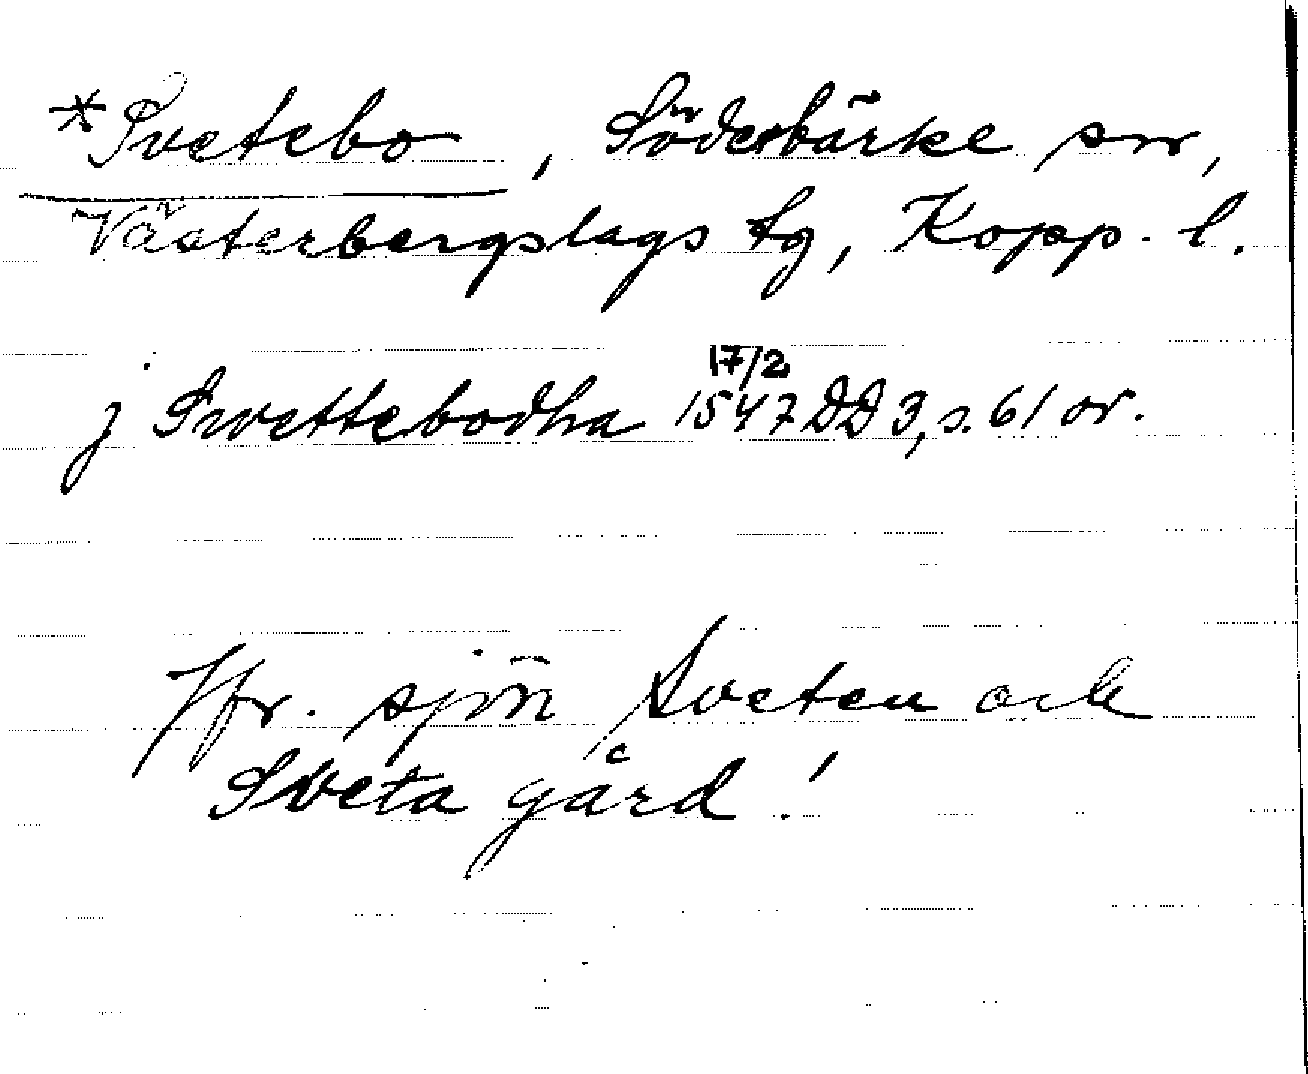 *Svetebo, Söderbärke sn,
Västerbergslags tg, Kopp. l.
17/2
j Swettebodha 1547 DD 3, s. 61 or.
Jfr. sjön Sveten och
Sveta gård!